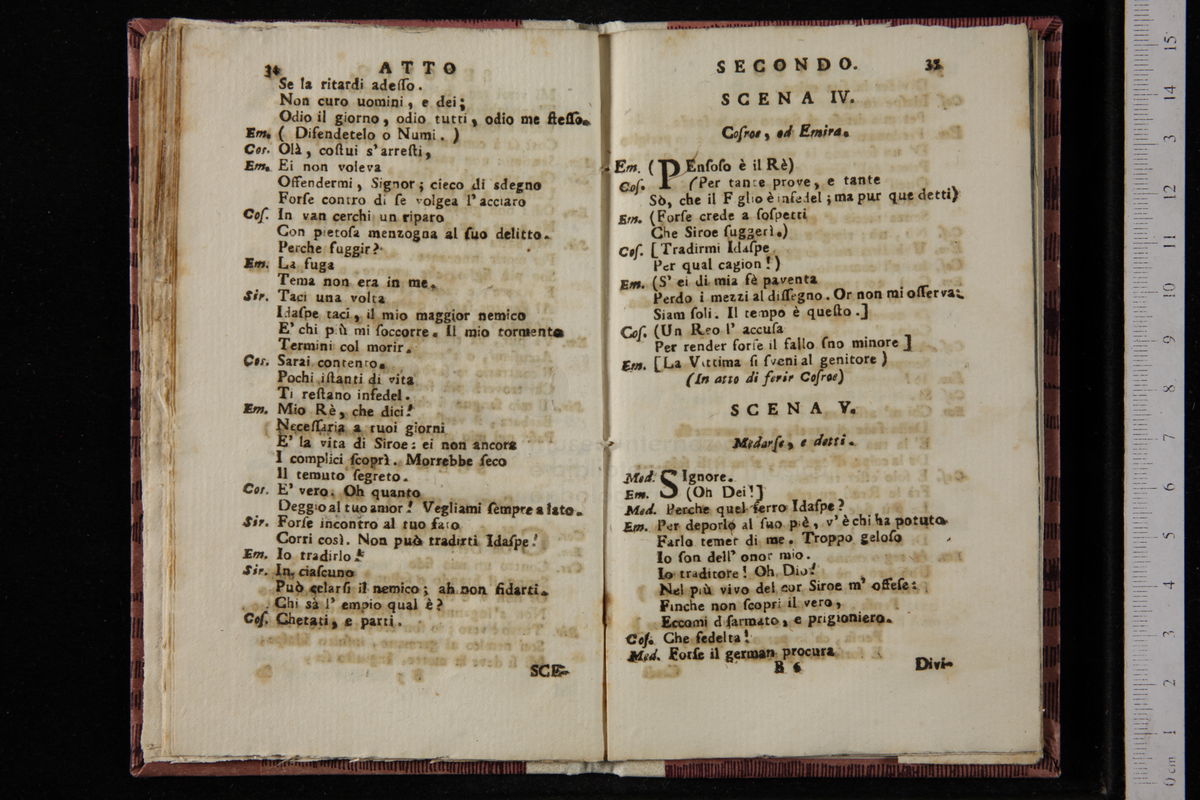 34 ATTO
Se la ritardi adeſſo.
Non curo uomini, e dei;
Odio il giorno, odio tutti, odio me ſteſſo.
Em. ( Difendetelo o Numi. )
Cos. Olà, coſtui s'arreſti,
Em. Ei non voleva
Offendermi, Signor; cieco di sdegno
Forſe contro di ſe volgea l'acciaro
Coſ. In van cerchi un riparo
Con pietoſa menzogna al ſuo delitto.
Perche fuggir?
Em. La fuga
Tema non era in me.
Sir. Taci una volta
Idaſpe taci, il mio maggior nemico
E' chi più mi ſoccorre. Il mio tormento
Termini col morir.
Cos. Sarai contento.
Pochi iſtanti di vita
Ti reſtano infedel.
Em. Mio Rè, che dici!
Neceſſaria a tuoi giorni
E' la vita di Siroe: ei non ancora
I complici ſcoprì. Morrebbe ſeco
Il temuto ſegreto.
Cos. E' vero. Oh quanto
Deggio al tuo amor! Vegliami ſempre a lato.
Sir. Forſe incontro al tuo fato
Corri così. Non può tradirti Idaſpe!
Em. Io tradirlo!
Sir. In ciaſcuno
Può celarſi il nemico; ah non fidarti.
Chi sà l'empio qual è?
Coſ. Chetati, e parti.
SCE-
SECONDO. 35
SCENA IV.
Coſroe, ed Emira.
Em. ( PEnſoſo è il Rè)
Coſ. (Per tante prove, e tante
Sò, che il F glio è infedel; ma pur que detti)
Em. (Forſe crede a ſoſpetti
Che Siroe ſuggerì.)
Coſ. [Tradirmi Idaſpe
Per qual cagion!)
Em. (S' ei di mia fè paventa
Perdo i mezzi al diſſegno. Or non mi oſſerva:
Siam ſoli. Il tempo è queſto.]
Coſ. (Un Reo l' accuſa
Per render forſe il fallo ſno minore]
Em. [La Vittima ſi ſveni al genitore)
(In atto di ferir Coſroe)
SCENA V.
Medarſe, e detti.
Med. SIgnore.
Em. (Oh Dei!]
Med. Perche quel ferro Idaſpe?
Em. Per deporlo al ſuo piè, v'è chi ha potuto
Farlo temer di me. Troppo geloſo
Io ſon dell' onor mio.
Io traditore! Oh Dio!
Nel più vivo del cor Siroe m' offeſe:
Finche non ſcopri il vero,
Eccomi d ſarmato, e prigioniero.
Coſ. Che fedelta!
Med. Forſe il german procura
B 6 Divi-
0 cm 1 2 3 4 5 6 7 8 9 10 11 12 13 14 15